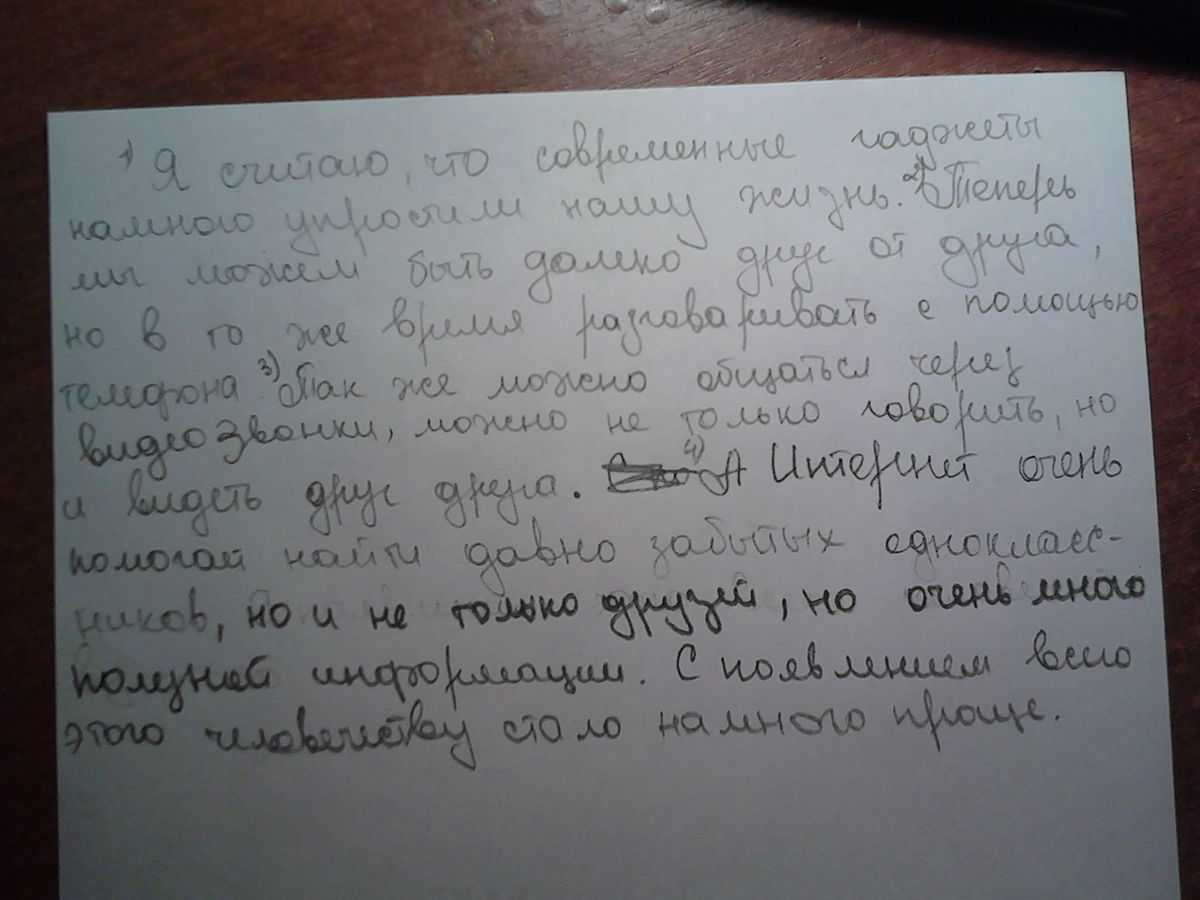 1) Я считаю, что современные гаджеты
намного упростили нашу жизнь. 2) Теперь
мы можем быть далеко друг от друга,
но в то же время разговаривать с помощью
телефона. 3) Так же можно общаться через
видеозвонки, можно не только говорить, но
и видеть друг друга. 4) А Интернет очень
помогай найти давно забытых однокласс-
ников, но и не только друзей, но очень много
полезней информации. С появлением всего
этого человечеству стало намного проще.